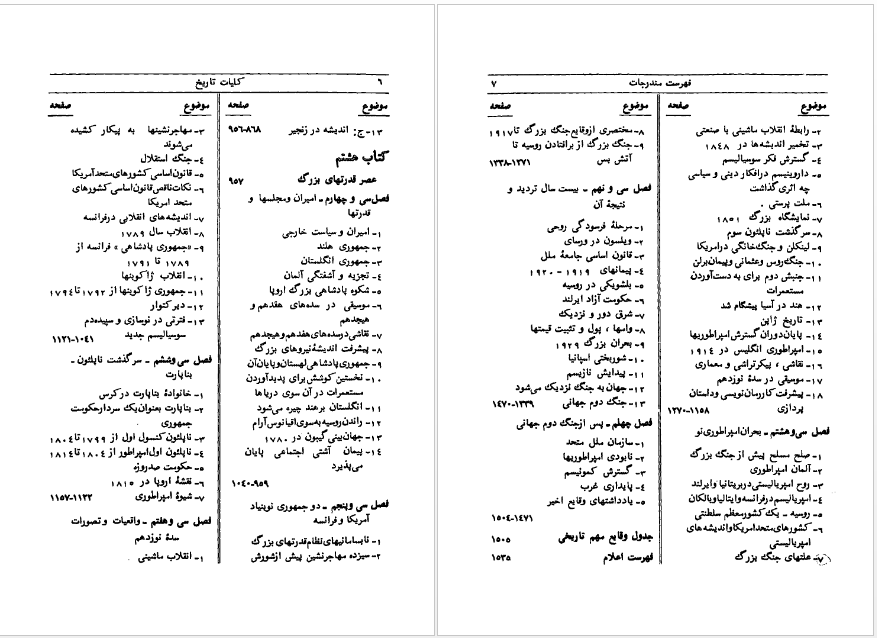 ۶ کلیات تاریخ
موضوع صفحه
۱۳-ج: اندیشه در زنجیر ۸۶۸-۹۵۶
کتاب هشتم
عصر قدرتهای بزرگ ۹۵۷
فصل سی و چهارم - امیران ومجلسها و
قدرتها
۱- امیران و سیاست خارجی
۲- جمهوری هلند
۳- جمهوری انگلستان
۴- تجزیه و آشفتگی آلمان
۵- شکوه پادشاهی بزرگ اروپا
۶- موسیقی در سده‌های هفدهم و
هیجدهم
۷- نقاشی درسده‌های هفدهم وهیجدهم
۸- پیشرفت اندیشهٔ نیروهای بزرگ
۹- جمهوری پادشاهی لهستان وپایان آن
۱۰- نخستین کوشش برای پدیدآوردن
مستعمرات در آن سوی دریاها
۱۱- انگلستان برهند چیره می‌شود
۱۲- راندن روسیه به‌سوی اقیانوس آرام
۱۳- جهان‌بینی گیبون در ۱۷۸۰
۱۴- پیمان آشتی اجتماعی پایان
می‌پذیرد
۹۵۹-۱۰۴۰
فصل سی وپنجم - دو جمهوری نوبنیاد
آمریکا و فرانسه
۱- نابسامانیهای نظام قدرتهای بزرگ
۲- سیزده مهاجرنشین پیش ازشورش
موضوع صفحه
۳- مهاجرنشینها به پیکار کشیده
می‌شوند
۴- جنگ استقلال
۵- قانون اساسی کشورهای متحدآمریکا
۶- نکات ناقص قانون اساسی کشورهای
متحد امریکا
۷- اندیشه‌های انقلابی درفرانسه
۸- انقلاب سال ۱۷۸۹
۹- «جمهوری پادشاهی» فرانسه از
۱۷۸۹ تا ۱۷۹۱
۱۰- انقلاب ژاکوبنها
۱۱- جمهوری ژاکوبنها از ۱۷۹۲ تا ۱۷۹۴
۱۲- دیرکتوار
۱۳- فترتی در نوسازی و سپیده‌دم
سوسیالیسم جدید ۱۰۴۱-۱۱۲۱
فصل سی وششم - سرگذشت ناپلئون -
بناپارت
۱- خانوادهٔ بناپارت در کرس
۲- بناپارت بعنوان یک سردارحکومت
جمهوری
۳- ناپلئون کنسول اول از ۱۷۹۹ تا ۱۸۰۴
۴- ناپلئون اول امپراطور از ۱۸۰۴ تا ۱۸۱۴
۵- حکومت صدروزه
۶- نقشهٔ اروپا در ۱۸۱۵
۷- شیوهٔ امپراطوری ۱۱۲۲-۱۱۵۷
فصل سی و هفتم - واقعیات و تصورات
سدهٔ نوزدهم
۱- انقلاب ماشینی
فهرست مندرجات ۷
موضوع صفحه
۲- رابطهٔ انقلاب ماشینی با صنعتی
۳- تخمیر اندیشه‌ها در ۱۸۴۸
۴- گسترش فکر سوسیالیسم
۵- داروینیسم درافکار دینی و سیاسی
چه اثری گذاشت
۶- ملت پرستی
۷- نمایشگاه بزرگ ۱۸۵۱
۸- سرگذشت ناپلئون سوم
۹- لینکلن و جنگ خانگی درامریکا
۱۰- جنگ روس وعثمانی وپیمان برلن
۱۱- جنبش دوم برای به دست‌آوردن
مستعمرات
۱۲- هند در آسیا پیشگام شد
۱۳- تاریخ ژاپن
۱۴- پایان دوران گسترش امپراطوریها
۱۵- امپراطوری انگلیس در ۱۹۱۴
۱۶- نقاشی ، پیکرتراشی و معماری
۱۷- موسیقی در سدهٔ نوزدهم
۱۸- پیشرفت کاررمان‌نویسی وداستان
پردازی ۱۱۵۸-۱۲۷۰
فصل سی وهشتم - بحران امپراطوری نو
۱- صلح مسلح پیش از جنگ بزرگ
۲- آلمان امپراطوری
۳- روح امپریالیستی دربریتانیا وایرلند
۴- امپریالیسم درفرانسه وایتالیا وبالکان
۵- روسیه - یک کشورمعظم سلطنتی
۶- کشورهای متحدامریکا واندیشه‌های
امپریالیستی
۷- علتهای جنگ بزرگ
موضوع صفحه
۸- مختصری ازوقایع جنگ بزرگ تا ۱۹۱۷
۹- جنگ بزرگ از برافتادن روسیه تا
آتش بس ۱۲۷۱-۱۳۳۸
فصل سی و نهم - بیست سال تردید و
نتیجهٔ آن
۱- مرحلهٔ فرسودگی روحی
۲- ویلسون در ورسای
۳- قانون اساسی جامعهٔ ملل
۴- پیمانهای ۱۹۱۹ - ۱۹۲۰
۵- بلشویکی در روسیه
۶- حکومت آزاد ایرلند
۷- شرق دور و نزدیک
۸- وامها ، پول و تثبیت قیمتها
۹- بحران بزرگ ۱۹۲۹
۱۰- شوربختی اسپانیا
۱۱- پیدایش نازیسم
۱۲- جهان به جنگ نزدیک می‌شود
۱۳- جنگ دوم جهانی ۱۳۳۹-۱۴۷۰
فصل چهلم - پس ازجنگ دوم جهانی
۱- سازمان ملل متحد
۲- نابودی امپراطوریها
۳- گسترش کمونیسم
۴- پایداری غرب
۵- یادداشتهای وقایع اخیر
۱۴۷۱-۱۵۰۴
جدول وقایع مهم تاریخی ۱۵۰۵
فهرست اعلام ۱۵۳۵